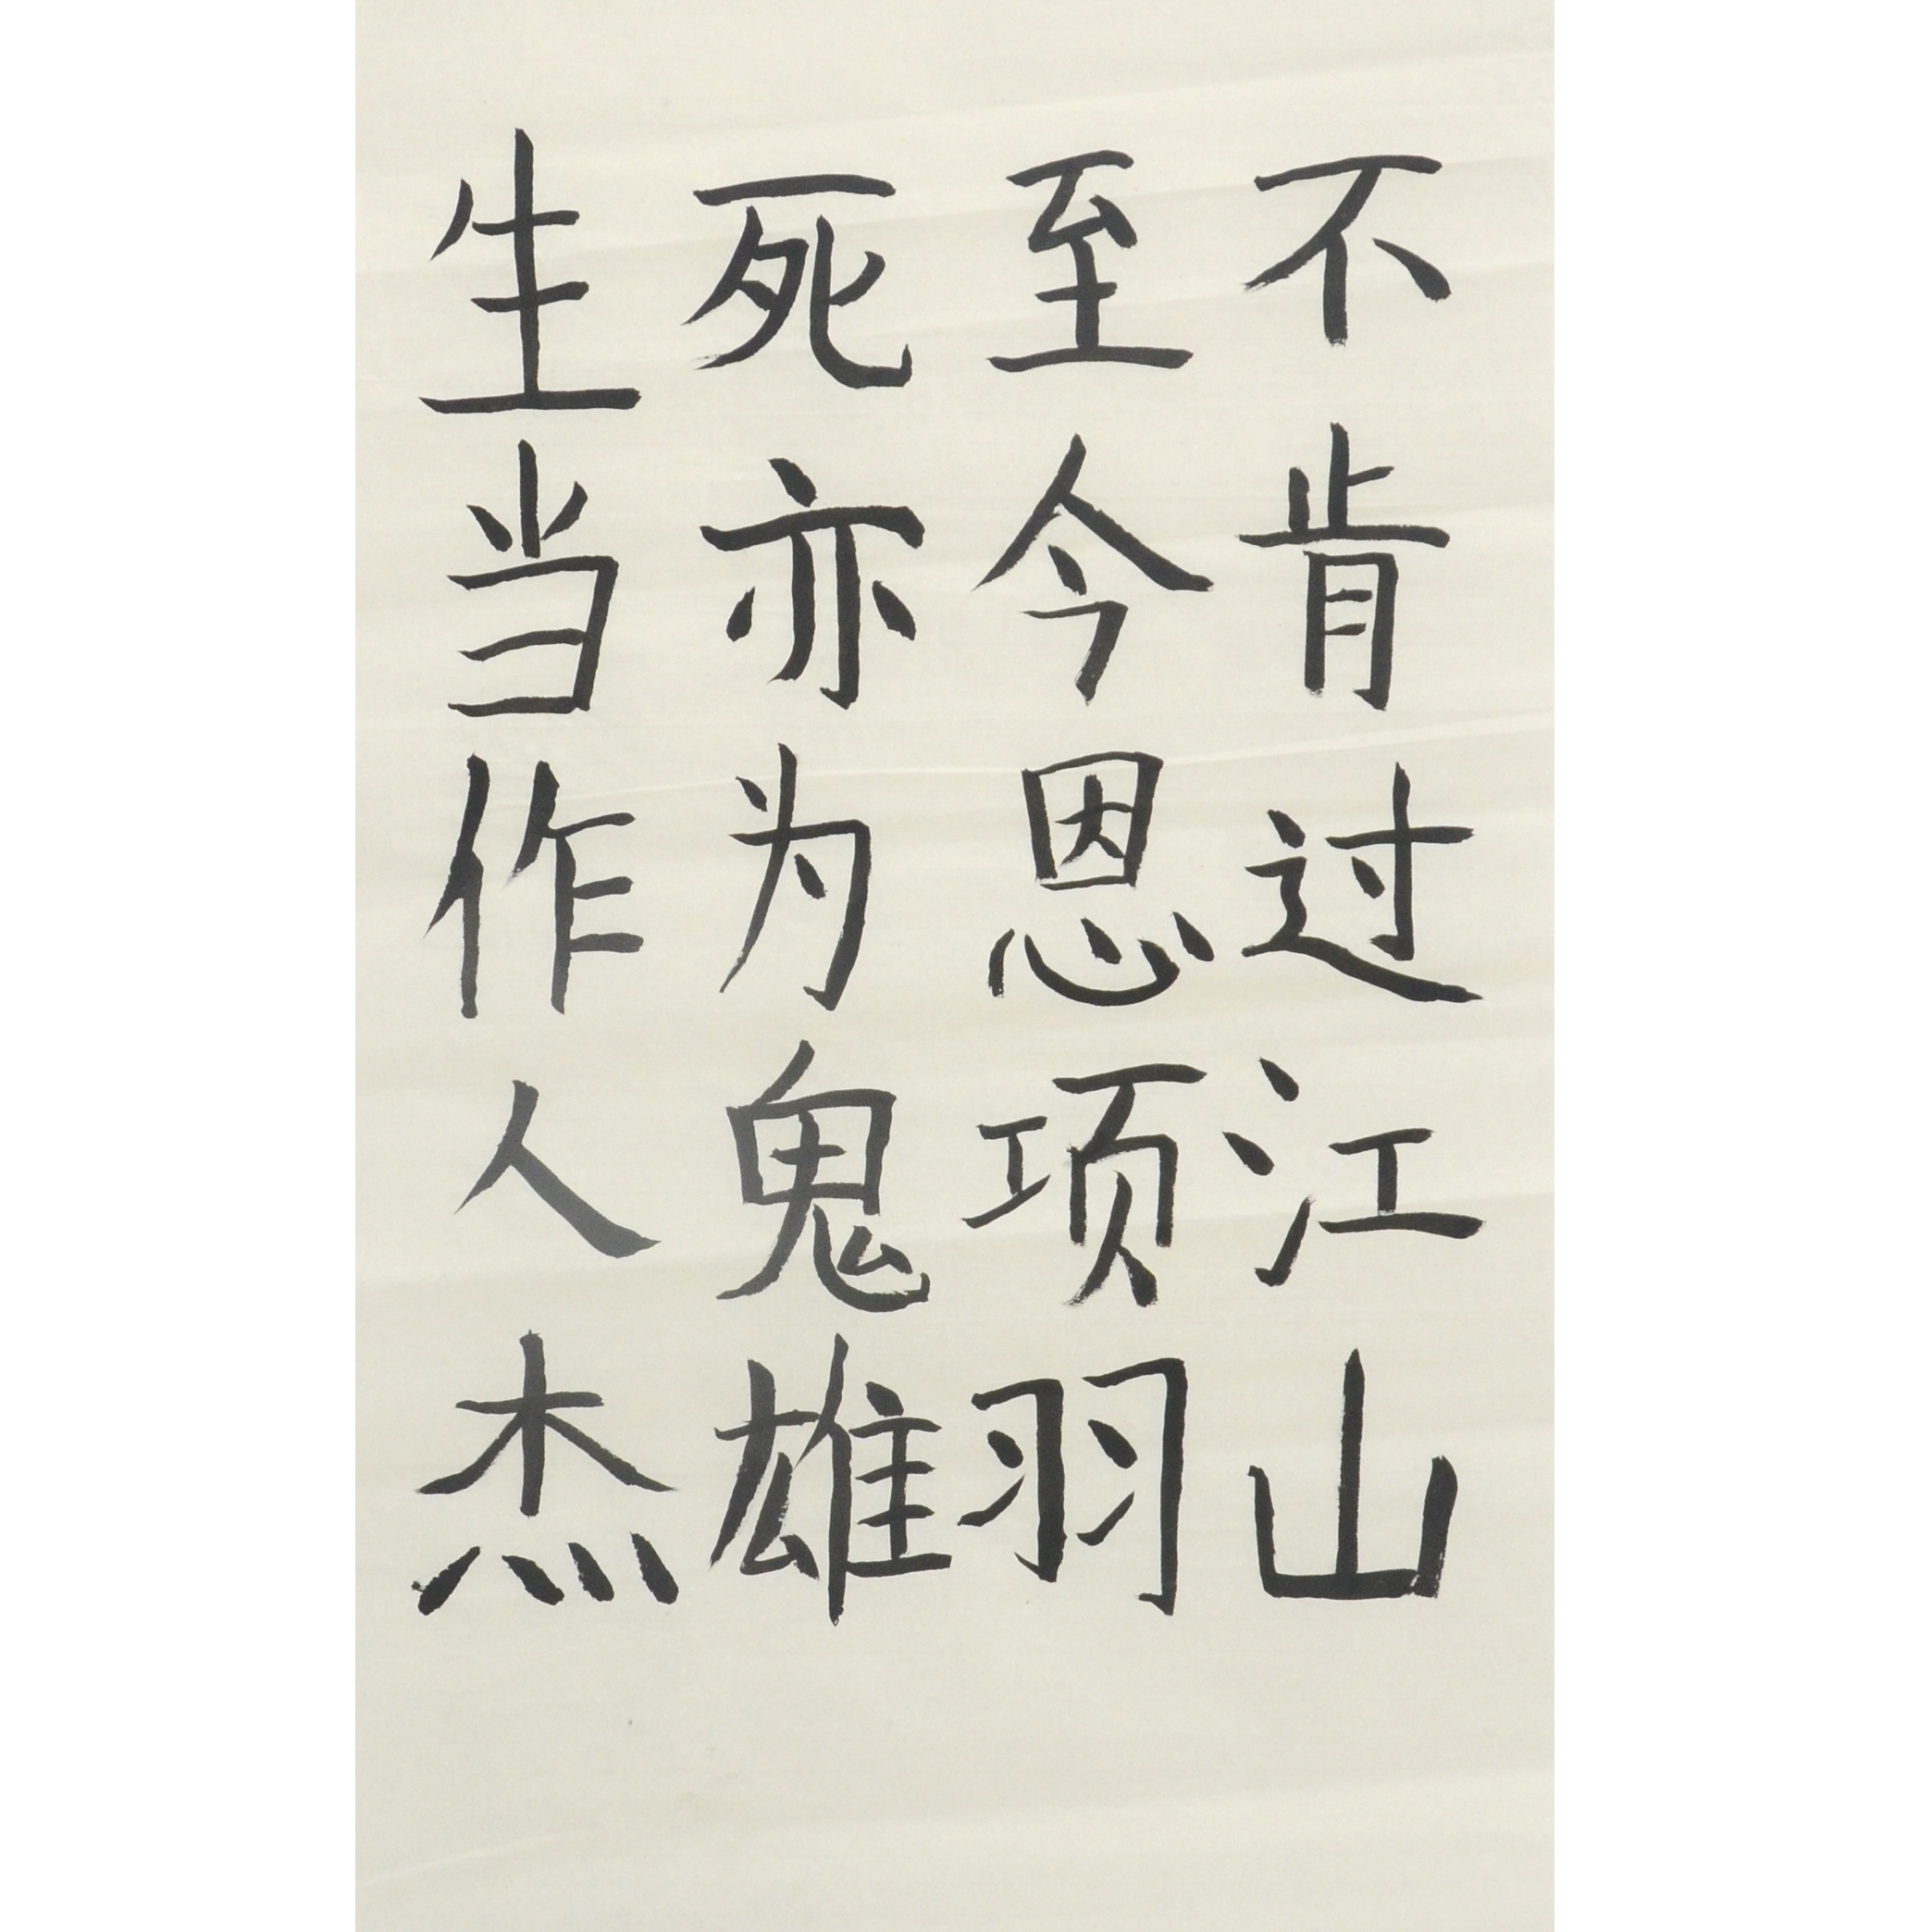 生当作人杰
死亦为鬼雄
至今恩项羽
不肯过江山